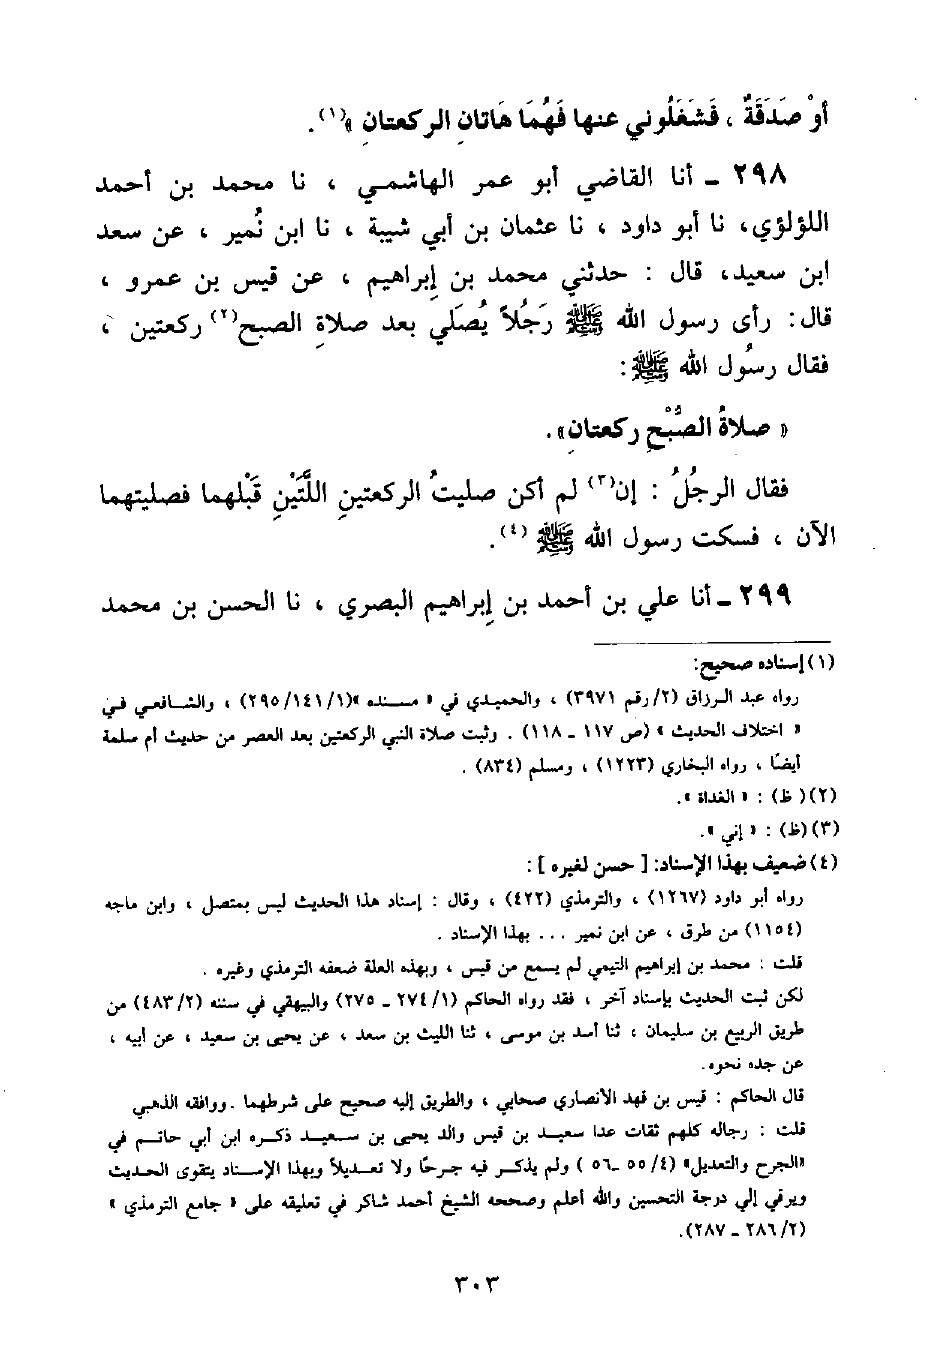 أوْ صَدَقَةٌ ، فَشَغَلُوني عنها فَهُمَا هَاتانِ الركعتانِ »(١).
٢٩٨ ـ أنا القاضي أبو عمر الهاشمي ، نا محمد بن أحمد
اللؤلؤي، نا أبو داود ، نا عثمان بن أبي شيبة ، نا ابن نُمير ، عن سعد
ابن سعيد، قال : حدثني محمد بن إِبراهيم ، عن قيس بن عمرو ،
قال: رأى رسول الله ﷺ رَجُلاً يُصَلي بعد صلاةِ الصبح(٢) ركعتين ،
فقال رسُول الله ﷺ:
« صلاةُ الصُّبْحِ ركعتانِ».
فقال الرجُلُ : إن(٣) لم أكن صليتُ الركعتينِ اللَّتَيْنِ قَبْلهما فصليتهما
الآن ، فسكت رسول الله ﷺ (٤).
٢٩٩ ـ أنا علي بن أحمد بن إِبراهيم البصري ، نا الحسن بن محمد
(١) إسناده صحيح:
رواه عبد الرزاق (٢/ رقم ٣٩٧١) ، والحميدي في « مسنده »(٢٩٥/١٤١/١) ، والشافعي في
« اختلاف الحديث » (ص ١١٧ ـ ١١٨) . وثبت صلاة النبي الركعتين بعد العصر من حديث أم سلمة
أيضًا ، رواه البخاري (١٢٢٣) ، ومسلم (٨٣٤) .
(٢)( ظ) : « الغداة ».
(٣) (ظ) : « إني ».
(٤) ضعيف بهذا الإسناد: [ حسن لغيره ] :
رواه أبو داود (١٢٦٧) ، والترمذي (٤٢٢) ، وقال : إسناد هذا الحديث ليس بمتصل ، وابن ماجه
(١١٥٤) من طرق ، عن ابن نمير ... بهذا الإسناد .
قلت : محمد بن إبراهيم التيمي لم يسمع من قيس ، وبهذه العلة ضعفه الترمذي وغيره .
لكن ثبت الحديث بإسناد آخر ، فقد رواه الحاكم (١/ ٢٧٤ ـ ٢٧٥) والبيهقي في سننه (٢/ ٤٨٣) من
طريق الربيع بن سليمان ، ثنا أسد بن موسى ، ثنا الليث بن سعد ، عن يحيى بن سعيد ، عن أبيه ،
عن جده نحوه.
قال الحاكم : قيس بن قهد الأنصاري صحابي ، والطريق إليه صحيح على شرطهما . ووافقه الذهبي
قلت : رجاله كلهم ثقات عدا سعيد بن قيس والد يحيى بن سعيد ذكره ابن أبي حاتم في
«الجرح والتعديل» (٤/ ٥٥ ـ٥٦ ) ولم يذكر فيه جرحًا ولا تعديلاً وبهذا الإسناد يتقوى الحديث
ويرقي إلي درجة التحسين والله أعلم وصححه الشيخ أحمد شاكر في تعليقه على « جامع الترمذي »
(٢/ ٢٨٦ ـ ٢٨٧).
٣٠٣